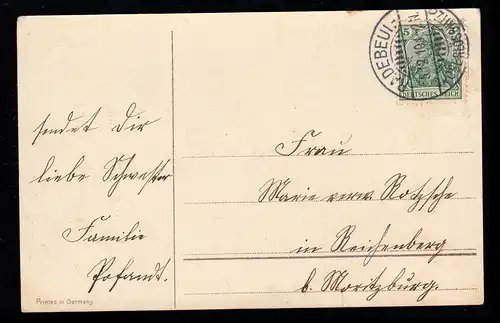 sendet Dir
liebe Schwester
Familie
Pofandt.
Printed in Germany
RADEBEUL
5
DEUTSCHES REICH
Frau
Marie verw. Rotzsche
in Reichenberg
b. Moritzburg.